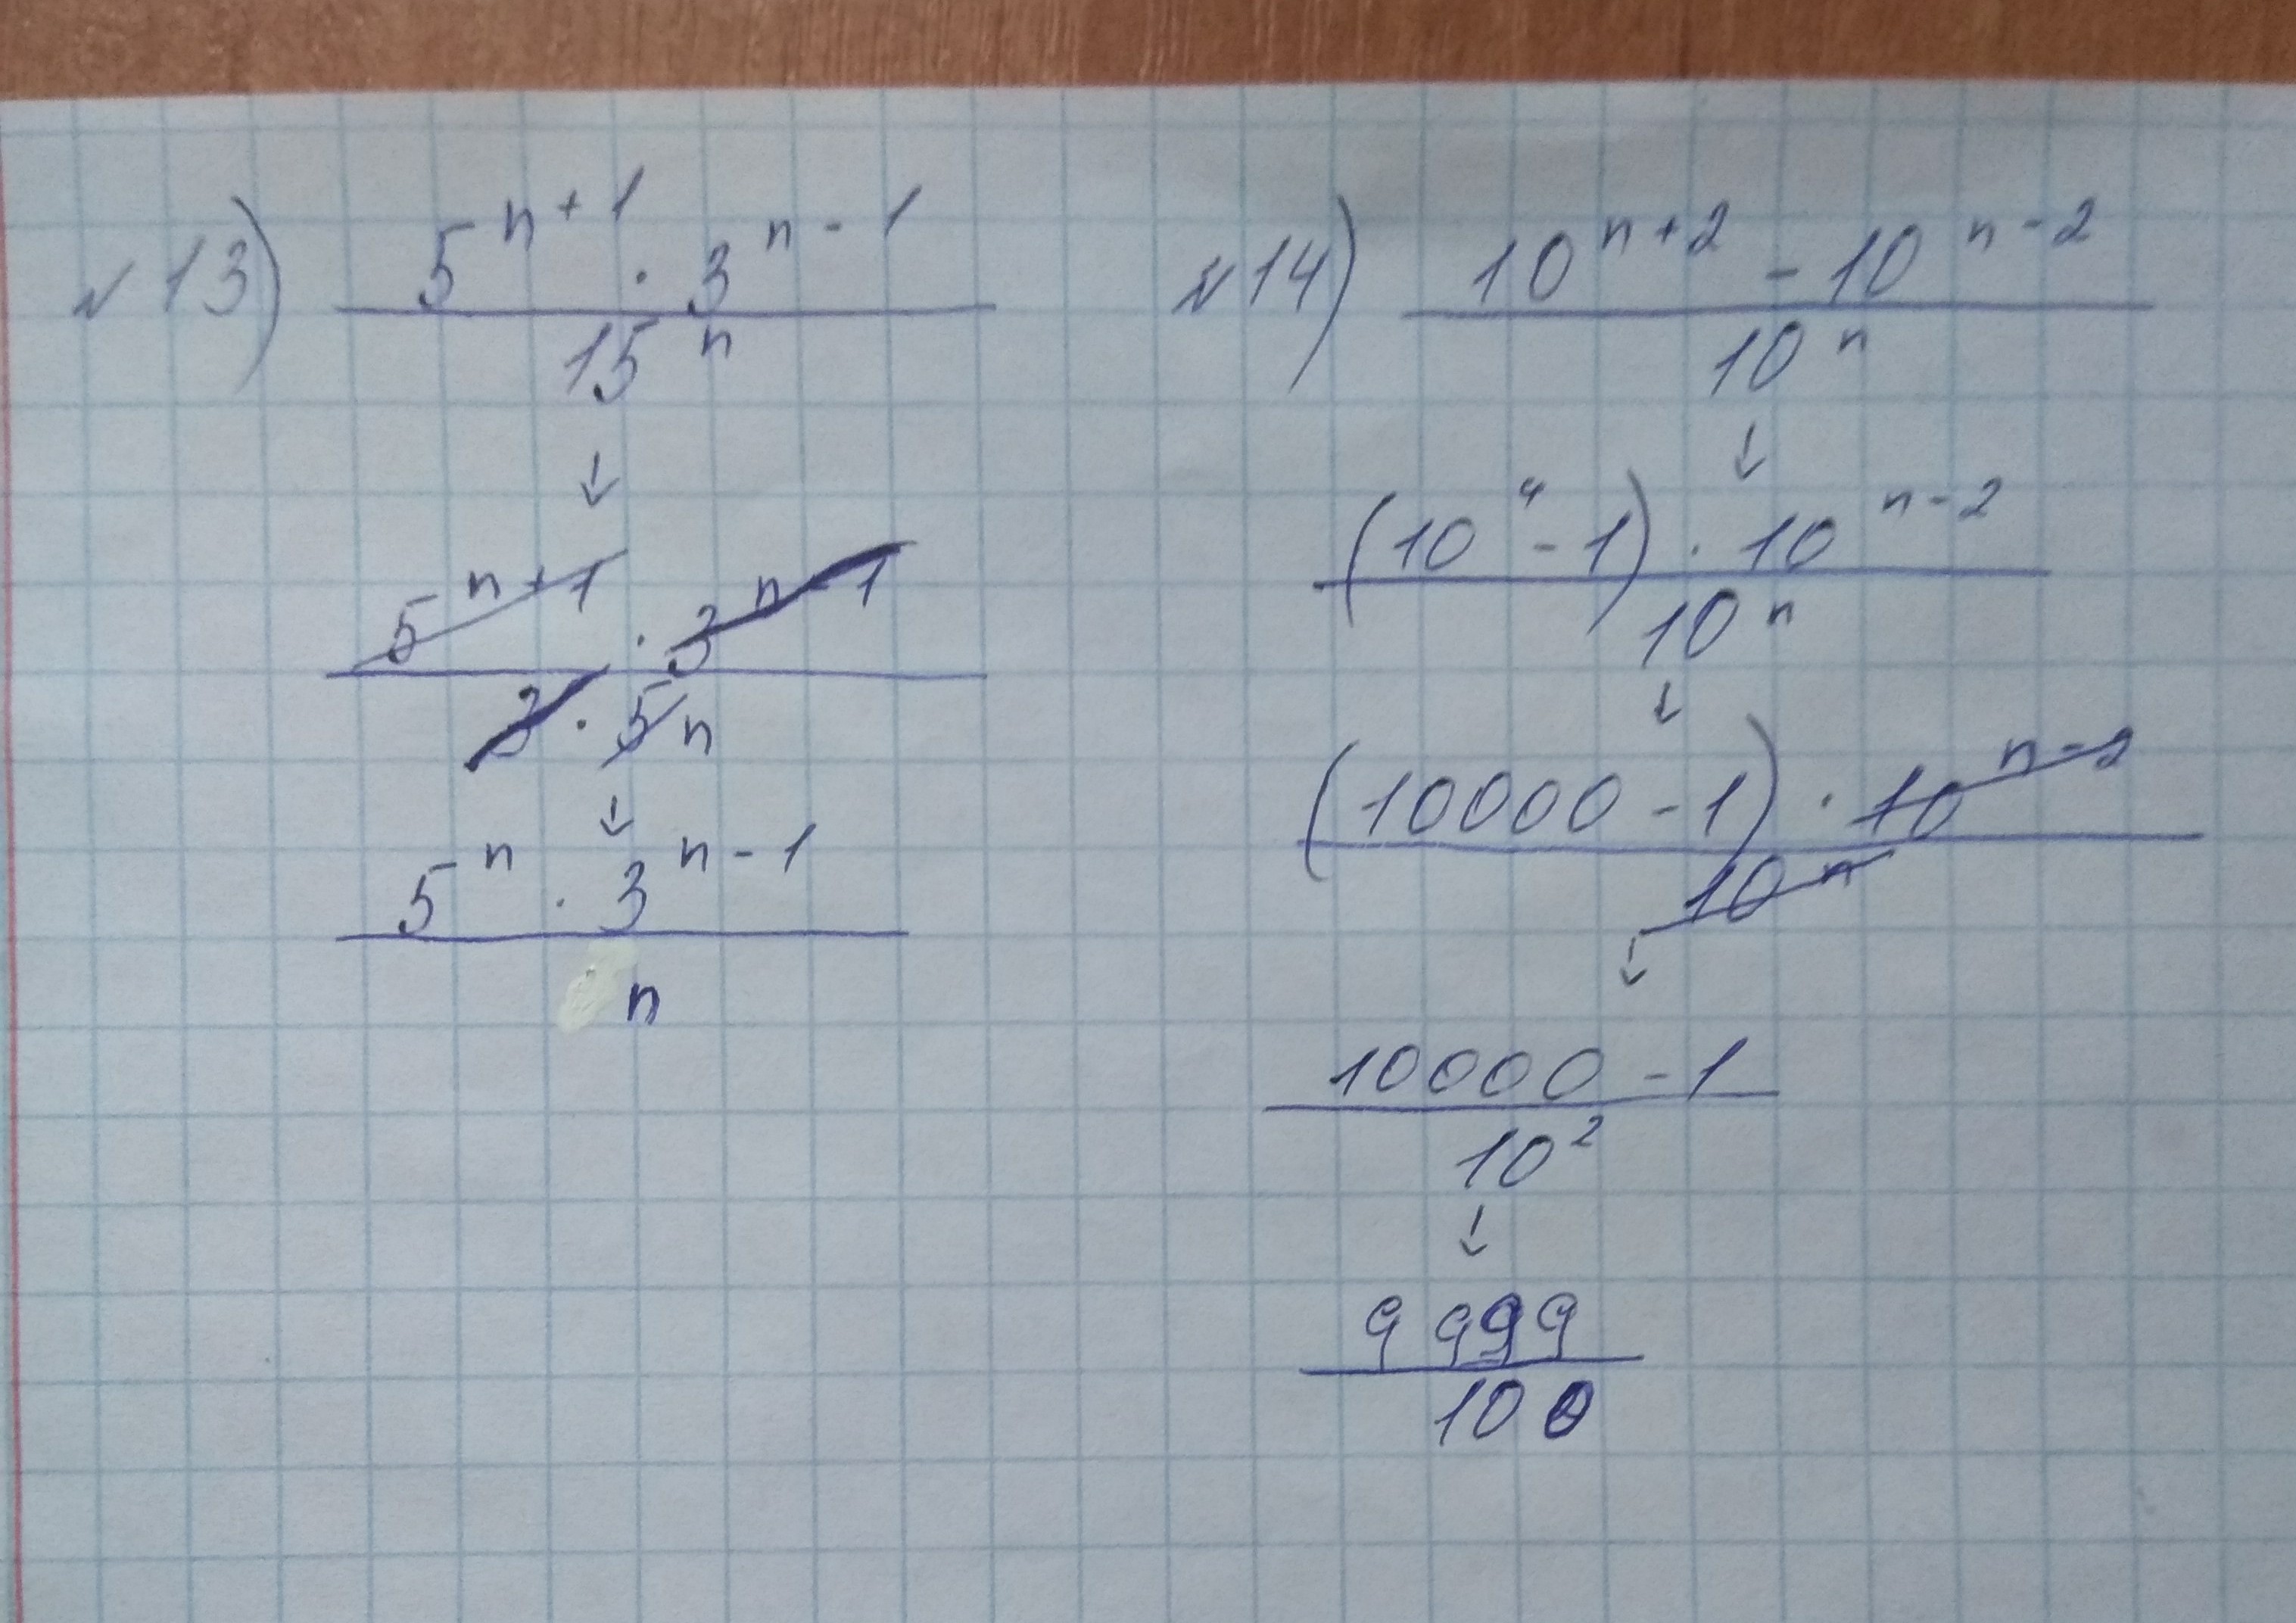 №13) 5^(n+1) · 3^(n-1)
15^n
↓
5^(n+1) · 3^(n-1)
3 · 5 n
↓
5^n · 3^(n-1)
n
№14) 10^(n+2) - 10^(n-2)
10^n
↓
(10^4 - 1) · 10^(n-2)
10^n
↓
(10000 - 1) · 10^(n-2)
10^n
↓
10000 - 1
10^2
↓
9999
100